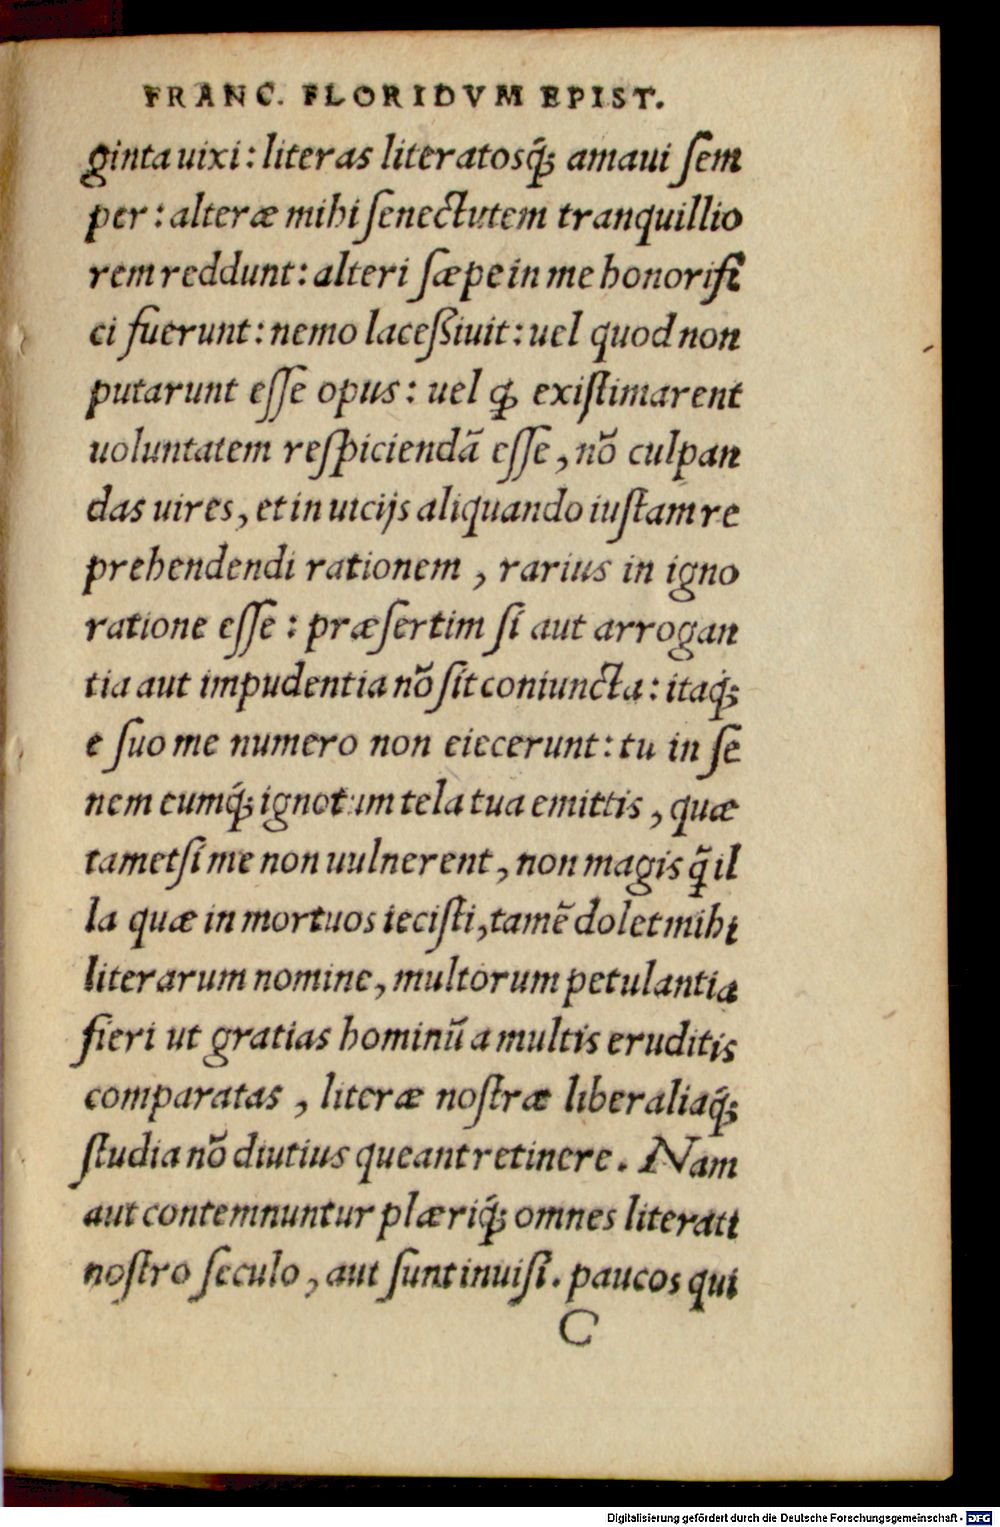 FRANC. FLORIDVM EPIST.
ginta uixi: literas literatosq́; amaui ſem
per: alteræ mihi ſenectutem tranquillio
rem reddunt: alteri ſæpe in me honorifi
ci fuerunt: nemo laceßiuit: uel quod non
putarunt eſſe opus: uel ꝙ existimarent
uoluntatem reſpiciendã eſſe, nõ culpan
das uires, et in uicijs aliquando iustam re
prehendendi rationem, rarius in igno
ratione eſſe: præſertim ſi aut arrogan
tia aut impudentia nõ ſit coniuncta: itaq́;
e ſuo me numero non eiecerunt: tu in ſe
nem eumq́; ignotum tela tua emittis, quæ
tametſi me non uulnerent, non magis q̃ il
la quæ in mortuos iecisti, tamẽ dolet mihi
literarum nomine, multorum petulantia
fieri ut gratias hominũ a multis eruditis
comparatas, literæ nostræ liberaliaq́;
studia nõ diutius queant retinere. Nam
aut contemnuntur plæriq́; omnes literati
nostro ſeculo, aut ſunt inuiſi. paucos qui
C
Digitalisierung gefördert durch die Deutsche Forschungsgemeinschaft - DFG